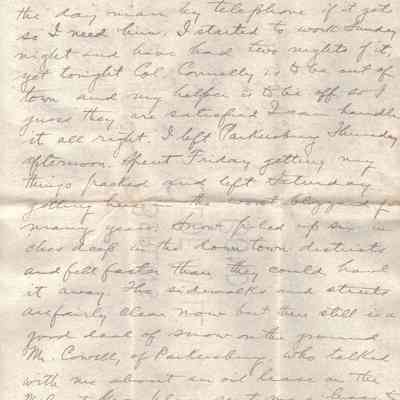 the day man by telephone if it gets
so I need him. I started to work Sunday
night and have had two nights of it,
yet tonight Col. Connelly is to be out of
town and my helper is to be off so I
guess they are satisfied I can handle
it all right. I left Parkersburg Thursday
afternoon. Spent Friday getting my
things packed and left Saturday
getting here in the worst blizzard for
many years. Snow piled up six in
deep in the down town districts
and fell faster than they could haul
it away. The sidewalks and streets
are fairly clear now but there still is a
good deal of snow on the ground
Mr. Cowell, of Parkersburg, who talked
with me about an oil lease on the